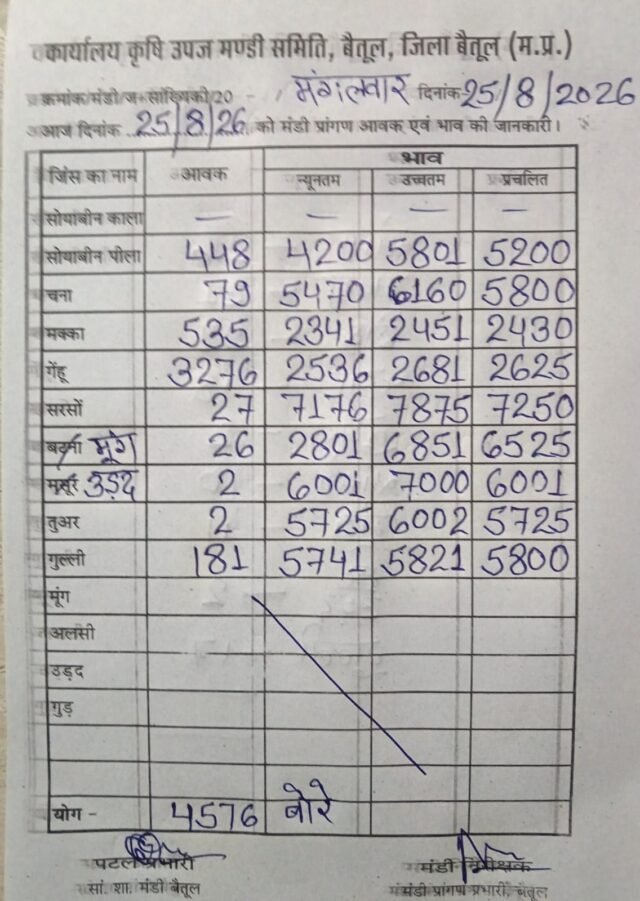 कार्यालय कृषि उपज मण्डी समिति, बैतूल, जिला बैतूल (म.प्र.)
क्रमांक/मंडी/ज+सांख्यिकी/20 - मंगलवार दिनांक 25/8/2026
आज दिनांक 25/8/26 को मंडी प्रांगण आवक एवं भाव की जानकारी।
भाव
जिंस का नाम आवक न्यूनतम उच्चतम प्रचलित
सोयाबीन काला — — — —
सोयाबीन पीला 448 4200 5801 5200
चना 79 5470 6160 5800
मक्का 535 2341 2451 2430
गेंहू 3276 2536 2681 2625
सरसों 27 7176 7875 7250
मूंग 26 2801 6851 6525
मसूर उड़द 2 6001 7000 6001
तुअर 2 5725 6002 5725
गुल्ली 181 5741 5821 5800
मूंग
अलसी
उड़द
गुड़
योग - 4576 बोरे
प्रभारी मंडी निरीक्षक
सां. शा. मंडी बैतूल मंडी प्रांगण प्रभारी, बैतूल